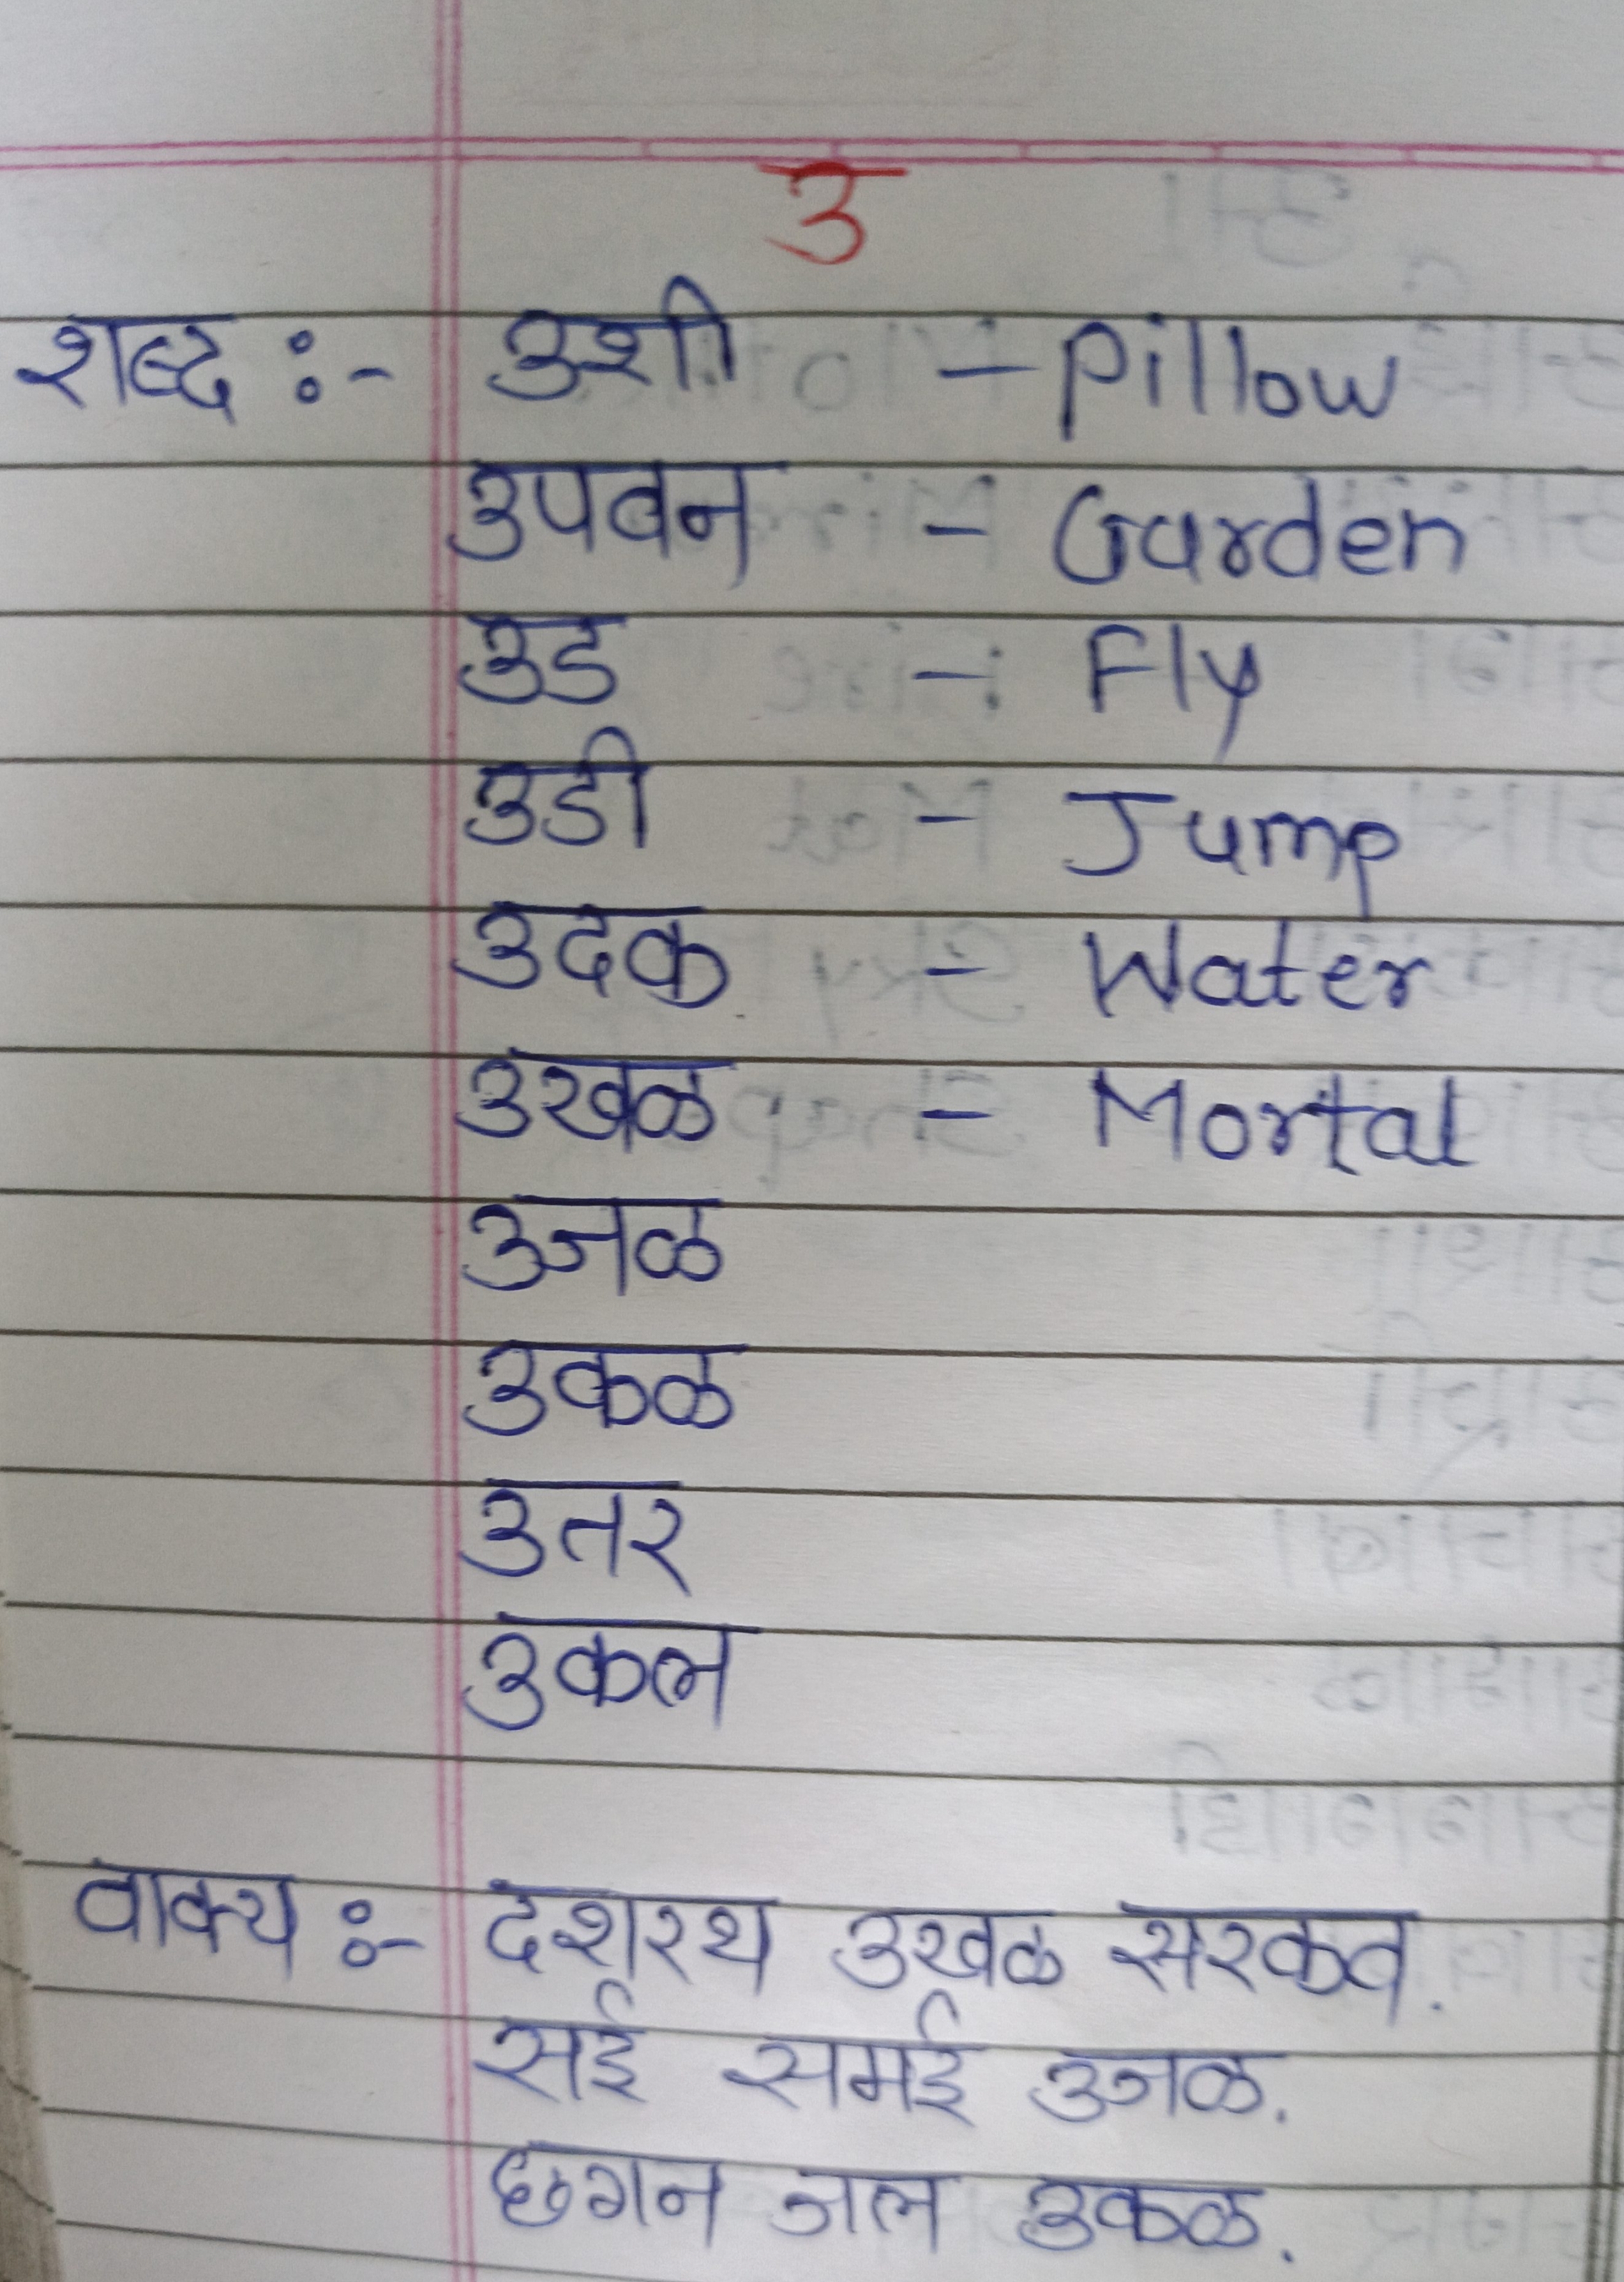 उ
शब्द :- उशी - Pillow
उपवन - Garden
उड - Fly
उडी - Jump
उदक - Water
उखळ - Mortal
उजळ
उकळ
उतर
उकल
वाक्य :- दशरथ उखळ सरकव.
सई समई उजळ.
छगन जल उकळ.